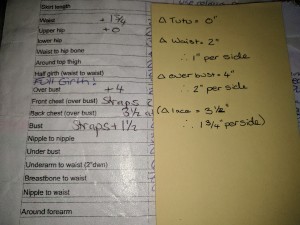 Skirt length
Waist + 1 3/4
Upper hip + 0
lower hip
Waist to hip bone
Around top thigh
Half girth (waist to waist)
Full Girth!
Over bust + 4
Front chest (over bust) Straps 2
Back chest (over bust) 3 1/2
Bust Straps + 1 1/2
Nipple to nipple
Under bust
Underarm to waist (2"dwn)
Breastbone to waist
Nipple to waist
Around forearm
Δ Tutu = 0"
Δ Waist = 2"
∴ 1" per side
Δ over bust = 4"
∴ 2" per side
(Δ lace = 3 1/2"
∴ 1 3/4" per side)